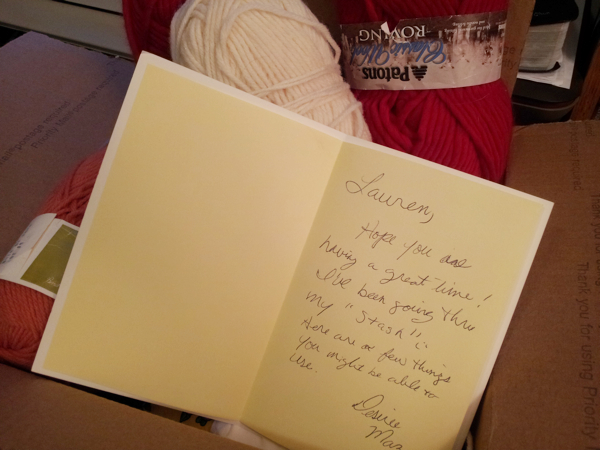 Patons
Classic Wool
ROVING
Lauren,
Hope you are
having a great time!
I've been going thru
my "Stash" &
here are a few things
you might be able to
use.
Desiree
Thank you for using Priority